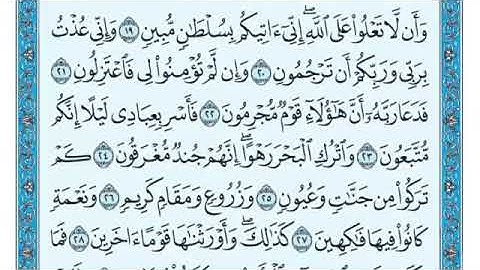 وَأَن لَّا تَعْلُوا۟ عَلَى ٱللَّهِ ۖ إِنِّىٓ ءَاتِيكُم بِسُلْطَـٰنٍ مُّبِينٍ ١٩ وَإِنِّى عُذْتُ
بِرَبِّى وَرَبِّكُمْ أَن تَرْجُمُونِ ٢٠ وَإِن لَّمْ تُؤْمِنُوا۟ لِى فَٱعْتَزِلُونِ ٢١
فَدَعَا رَبَّهُۥٓ أَنَّ هَـٰٓؤُلَآءِ قَوْمٌ مُّجْرِمُونَ ٢٢ فَأَسْرِ بِعِبَادِى لَيْلًا إِنَّكُم
مُّتَّبَعُونَ ٢٣ وَٱتْرُكِ ٱلْبَحْرَ رَهْوًا ۖ إِنَّهُمْ جُندٌ مُّغْرَقُونَ ٢٤ كَمْ
تَرَكُوا۟ مِن جَنَّـٰتٍ وَعُيُونٍ ٢٥ وَزُرُوعٍ وَمَقَامٍ كَرِيمٍ ٢٦ وَنَعْمَةٍ
كَانُوا۟ فِيهَا فَـٰكِهِينَ ٢٧ كَذَٰلِكَ ۖ وَأَوْرَثْنَـٰهَا قَوْمًا ءَاخَرِينَ ٢٨ فَمَا